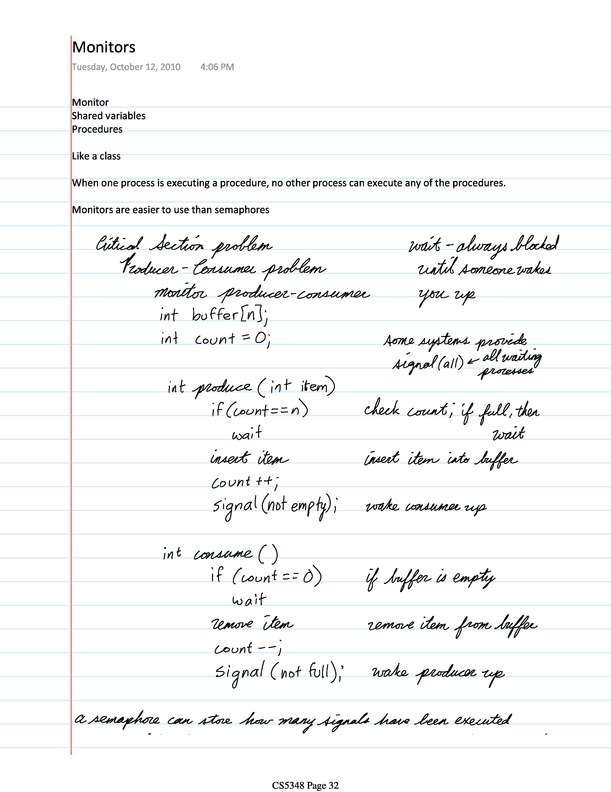 Monitors
Tuesday, October 12, 2010 4:06 PM
Monitor
Shared variables
Procedures
Like a class
When one process is executing a procedure, no other process can execute any of the procedures.
Monitors are easier to use than semaphores
Critical Section problem
Producer-Consumer problem
monitor producer-consumer
wait - always blocked
until someone wakes
you up
int buffer[n];
int count = 0;
some systems provide
signal(all) ← all waiting
processes
int produce (int item)
if (count==n) check count; if full, then
wait wait
insert item insert item into buffer
count ++;
signal (not empty); wake consumer up
int consume ()
if (count == 0) if buffer is empty
wait
remove item remove item from buffer
count --;
signal (not full); wake producer up
a semaphore can store how many signals have been executed
CS5348 Page 32